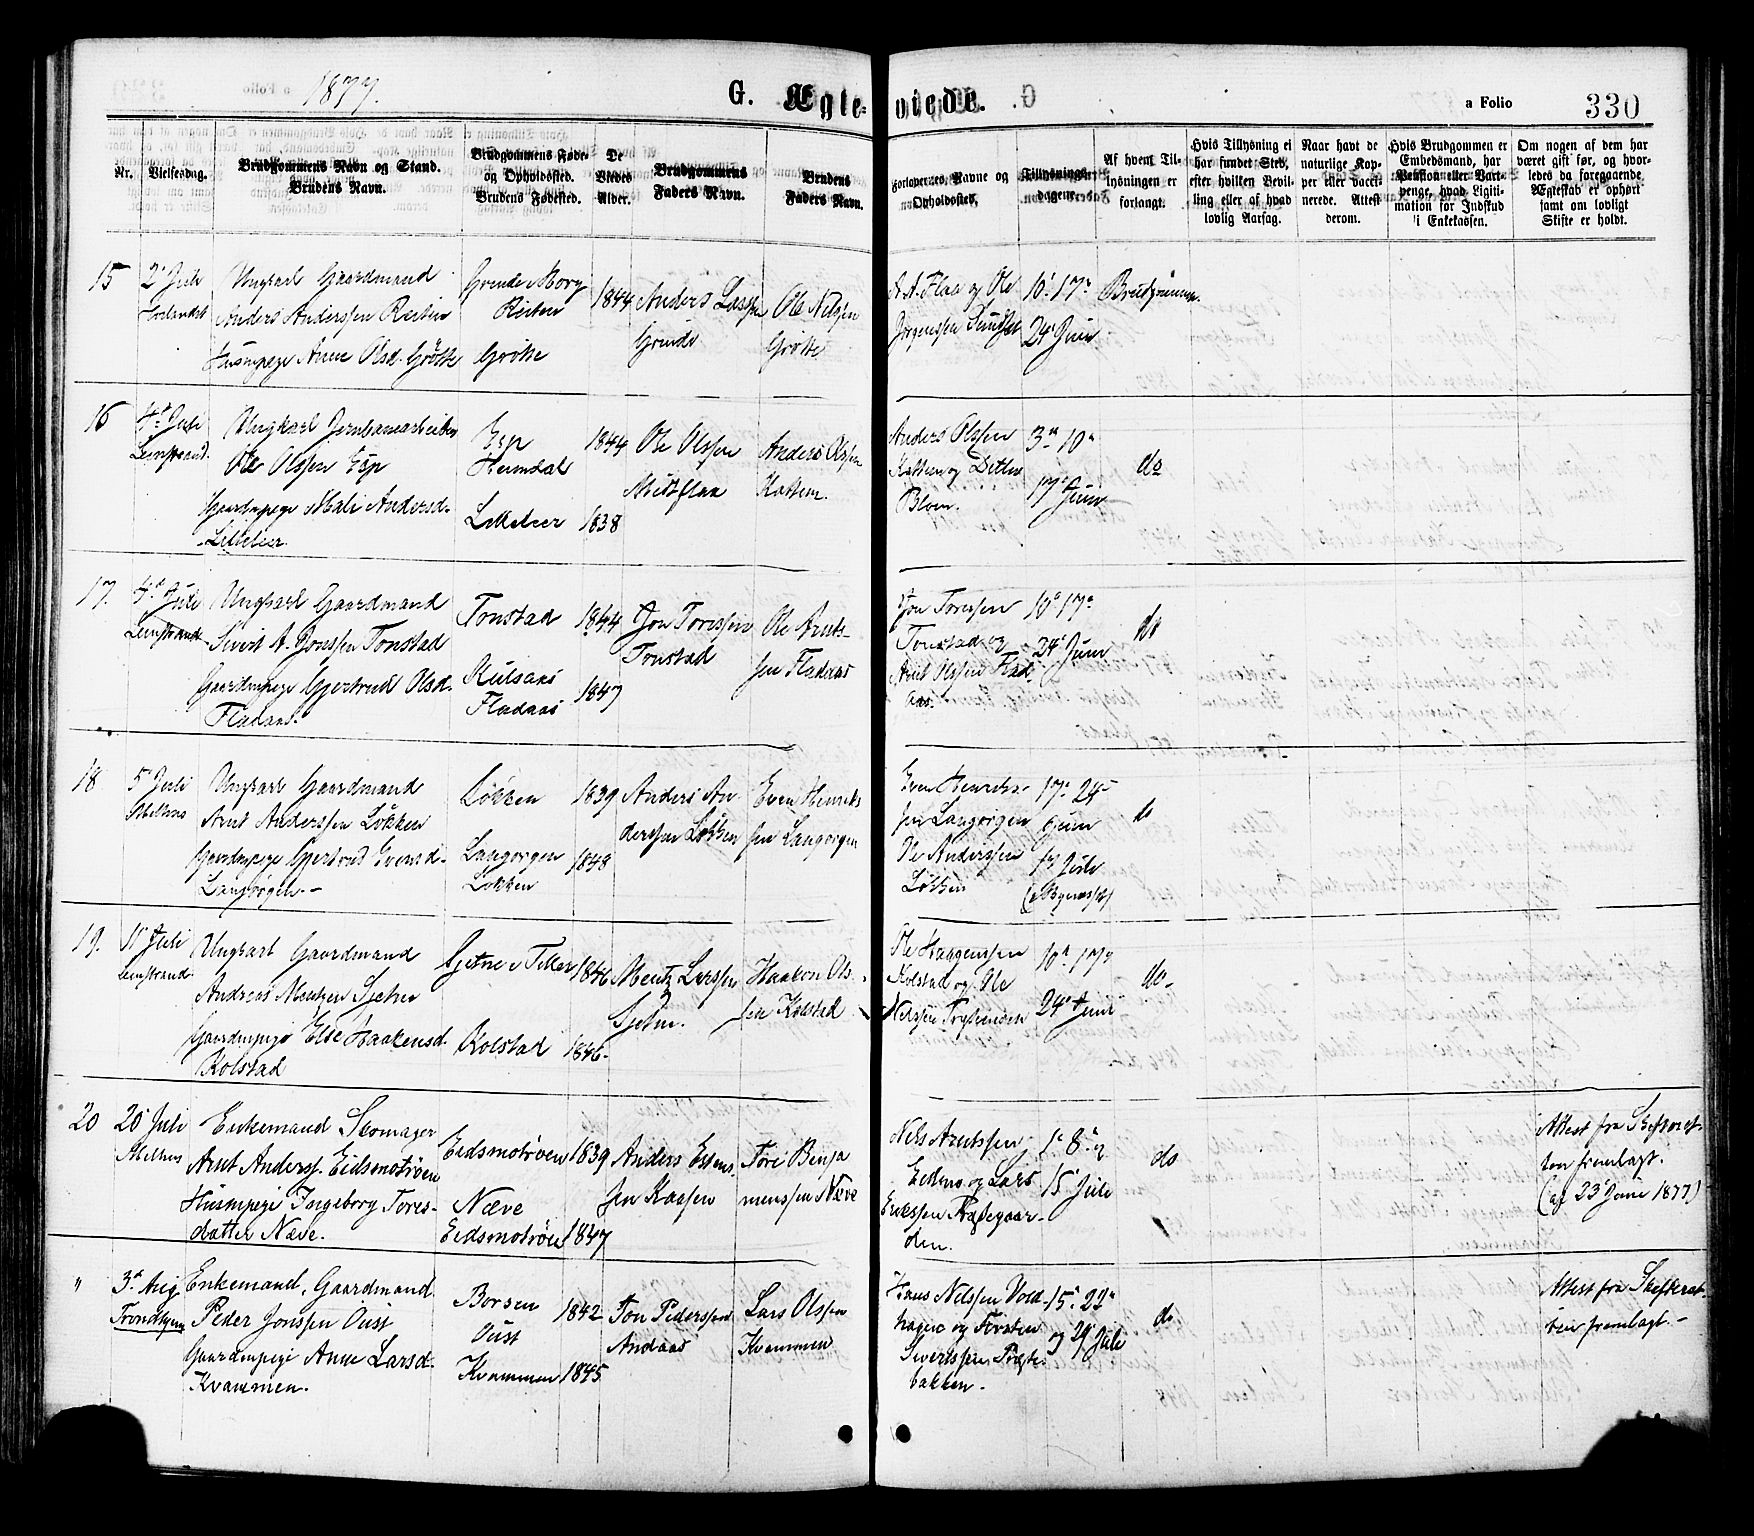 1877.
G. Ægte-
viede.
a Folio
330
Nr.
Vielsesdag.
Brudgommens Navn og Stand.
Brudens Navn.
Brudgommens Føde-
og Opholdssted.
Brudens Fødested.
De
Viedes
Alder.
Brudgommens
Faders Navn.
Brudens
Faders Navn.
Forlovernes Navne og
Opholdssted.
Tillysnings-
dagene.
Af hvem Til-
lysningen er
forlangt.
Hvis Tillysning ei
har fundet Sted,
efter hvilken Bevil-
ling eller af hvad
lovlig Aarsag.
Naar havt de
naturlige Kop-
per eller vacci-
nerede. Attest
derom.
Hvis Brudgommen er
Embedsmand, har
Pension eller Vart-
penge, hvad Ligiti-
mation for Indskud
i Enkekassen.
Om nogen af dem har
været gift før, og hvor-
ledes da foregaaende
Ægteskab er ophørt
samt om lovligt
Skifte er holdt.
15
2' Juli
Ungkarl Gaardmand
Anders Anderssen Reiten
Anne Olsd. Grötte
Grinde Borg
Reiten
Grötte
1844
Anders Larssen
Grinde
Ole Nilssen
Grötte
A. A. Flaa og Ole
Jørgenssen Sundset
10' 17'
24' Juni
Brudgommen
16
4' Juli
Leinstrand.
Ungkarl Jernbanearbeider
Ole Olssen Esp
Gaardmpige Mali Andersd.
Lilleleer.
Esp
Heimdal
Lilleleer
1844
1838
Ole Olssen
Midtflaa
Anders Olssen
Kattem.
Anders Olssen
Kattem og
3' 10'
17' Juni
do
17.
4' Juli
Leinstrand
Ungkarl Gaardmand
Sivert A. Jonssen Tonstad
Gaardmpige Gjertrud Olsd.
Fladaas.
Tonstad
Fladaas
1844
1847
Jon Toressen
Tonstad
Ole Arnts-
sen Fladaas
Jon Toressen
Tonstad og
Arnt Olssen Flad-
aas.
10' 17'
24' Juni
do
18
5' Juli
Melhus
Ungkarl Gaardmand
Arnt Anderssen Løkken
Gaardmpige Gjertrud Evensd.
Langørgen.-
Løkken
Langørgen
Løkken
1839
1848
Anders An-
derssen Løkken
Even Henrik-
sen Langørgen
Even Henrik-
sen Langørgen
Ole Anderssen
Løkken
17' 24'
Juni
1' Juli
do
19.
11' Juli
Leinstrand
Ungkarl Gaardmand
Andreas Mentzen Sjetne
Gaardmpige Else Haakensd.
Kolstad
Sjetne i Tiller
Kolstad
1846
1846.
Mentz Larssen
Sjetne.
Haakon Ols-
sen Kolstad
Ole Haagenssen
Kolstad og Ole
Nilssen
10' 17'
24' Juni
do
20
20' Juli
Melhus
Enkemand Skomager
Arnt Anderss. Eidsmotrøen
Huusmpige Ingeborg Tores-
datter Næve.
Eidsmotrøen
Næve
Eidsmotrøen
1839
1847
Anders Estens-
sen Kaasen
Tore Benja-
menssen Næve
Nels Arntssen
og Lars
Erikssen Prestegaar-
den.
1' 8' og
15' Juli
do
Attest fra Skifteret-
ten fremlagt.
(af 23' Juni 1877)
"
3' Aug
Trondhjem
Enkemand, Gaardmand
Peder Jonssen Oust
Gaardmpige Anne Larsd.
Kvammen.
Borsen
Oust
Kvammen
1842
1845
Jon Pederssen
Andaas
Lars Olssen
Kvammen
Hans Nilssen Vold-
hagen og Torsten
Sivertssen
bakken.
15' 22'
og 29' Juli
do
Attest fra Skifteret-
ten fremlagt.-